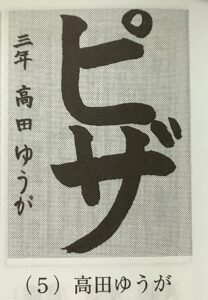 ピザ
三年 高田ゆうが
(5) 高田ゆうが